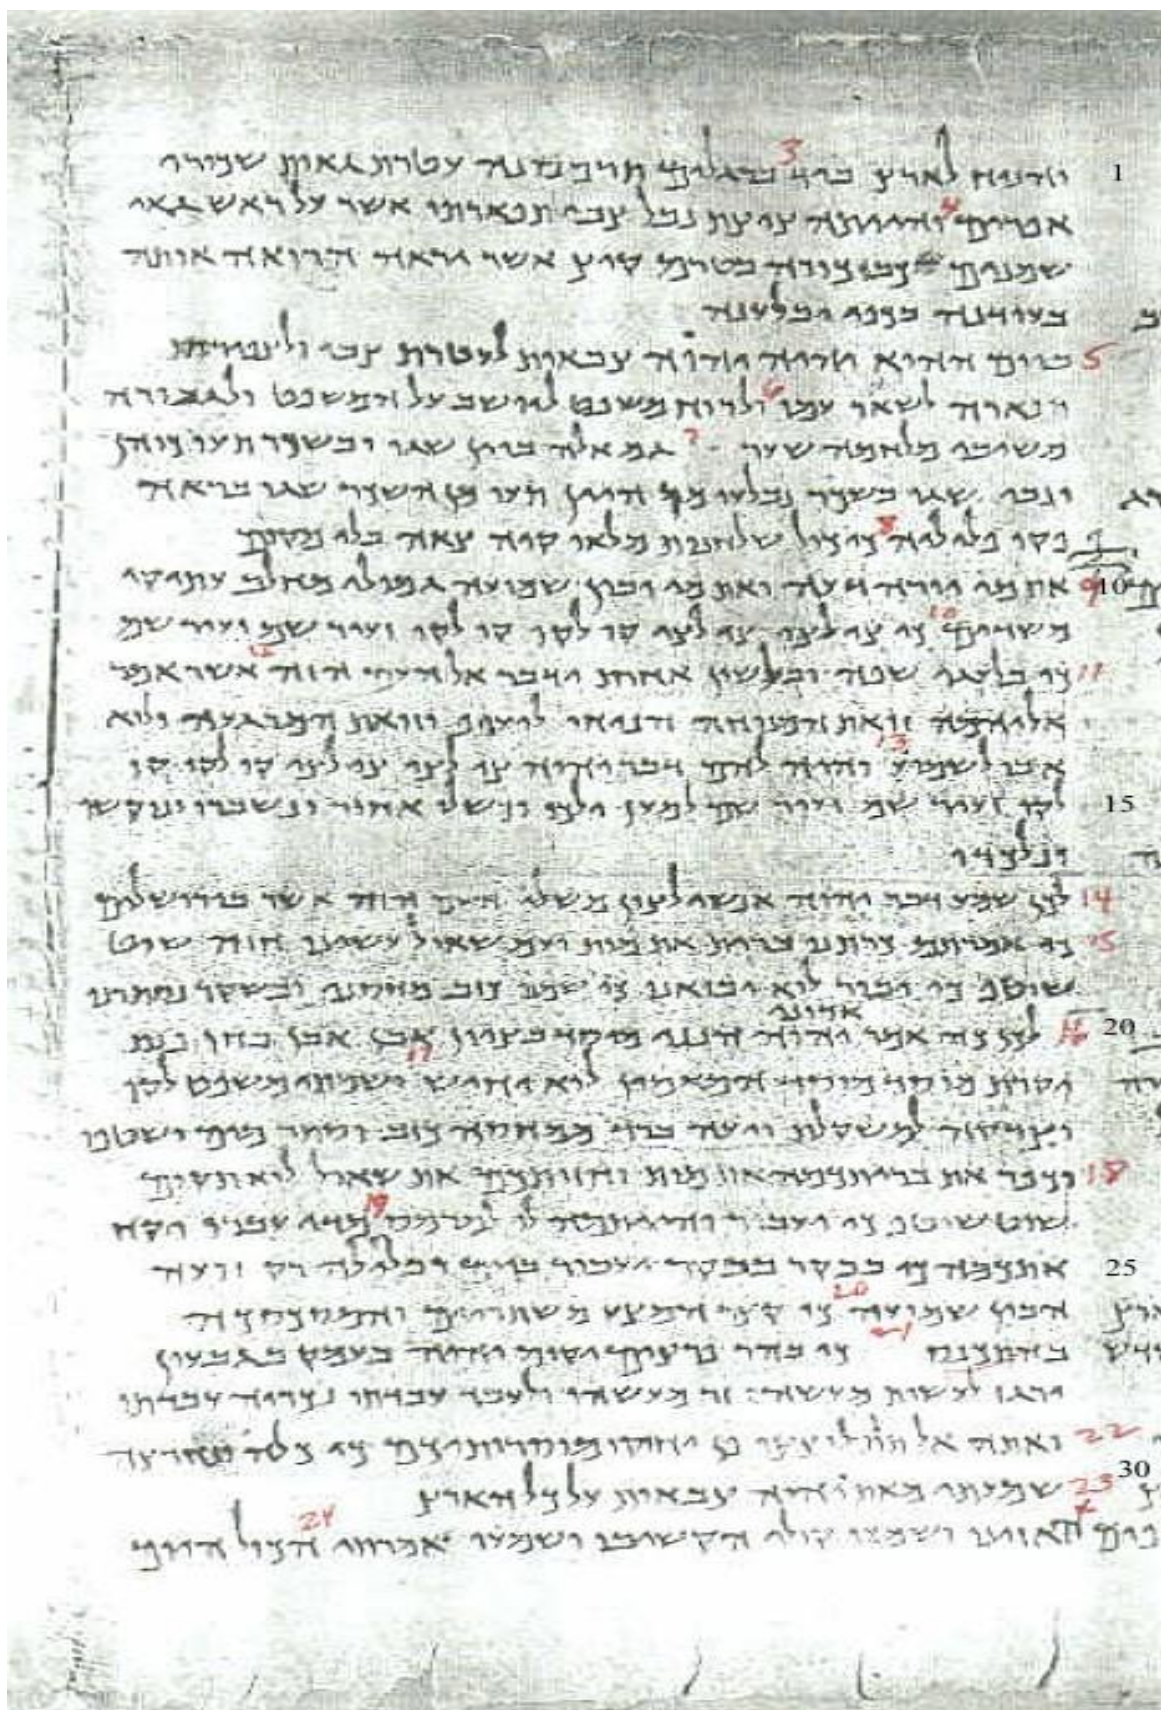 1 והניח לארץ ביד 3 ברגלים תרמסנה עטרת גאון שכורי
אפרים 4 והייתה ציצת נבל צבי תפארתו אשר על ראש גאי
שמנים כבכורה בטרם קיץ אשר יראה הרואה אותה
בעודנה בכפו יבלענה
5 ביום ההוא יהיה יהוה צבאות לעטרת צבי ולצפירת
תפארה לשאר עמו 6 ולרוח משפט ליושב על המשפט ולגבורה
משיבי מלחמה שער 7 גם אלה ביין שגו ובשכר תעו כוהן
ונביא שגו בשכר נבלעו מן היין תעו מן השכר שגו בראה
פקו פליליה 8 כי כול שלחנות מלאו קיה צאה בלי מקום
10 9 את מי יורה דעה ואת מי יבין שמועה גמולי מחלב עתיקי
משדים 10 כי צי לצי צי לצי קו לקו קו לקו זעיר שם זעיר שם
11 כי בלעגי שפה ובלשון אחרת ידבר אל העם הזה 12 אשר אמר
אליהמה זואת המנוחה הניחו לעיף וזואת המרגעה ולוא
אבו לשמוע 13 והיה להם דבר יהוה צי לצי צי לצי קו לקו קו
15 לקו זעיר שם זעיר שם למען ילכו וכשלו אחור ונשברו ונוקשו
ונלכדו
14 לכן שמעו דבר יהוה אנשי לצון משלי העם הזה אשר בירושלים
15 כי אמרתם כרתנו ברית את מות ועם שאול עשינו חוזה שוט
שוטף כי יעבור לוא יבואנו כי שמנו כזב מחסנו ובשקר נסתרנו
אדוני
20 16 לכן כה אמר יהוה הנני מיסד בציון אבן אבן בחן פנת
יקרת מוסד מוסד המאמין לוא יחיש 17 ושמתי משפט לקו
וצדקה למשקלת ויעה ברד מחסה כזב וסתר מים ישטפו
18 וכפר את בריתכמה את מות וחזותכם את שאול לוא תקום
שוט שוטף כי יעבור והייתמה לו למרמס 19 מדי עברו יקח
25 אתכמה כי בבקר בבקר יעבור ביום ובלילה רק זועה
הבין שמועה 20 כי קצר המצע משתרים והמסכסכה
בהתכנס 21 כי כהר פרצים יקום יהוה בעמק בגבעון
ירגז לעשות מעשהו זר מעשהו ולעבד עבדתו נכריה עבדתו
22 ואתה אל תתלוצצו פן יחזקו מוסרותיכם כי כלה ונחרצה
30 23 שמעתי מאת יהוה צבאות על כל הארץ
האזינו ושמעו קולי הקשיבו ושמעו אמרתי 24 הכול היום